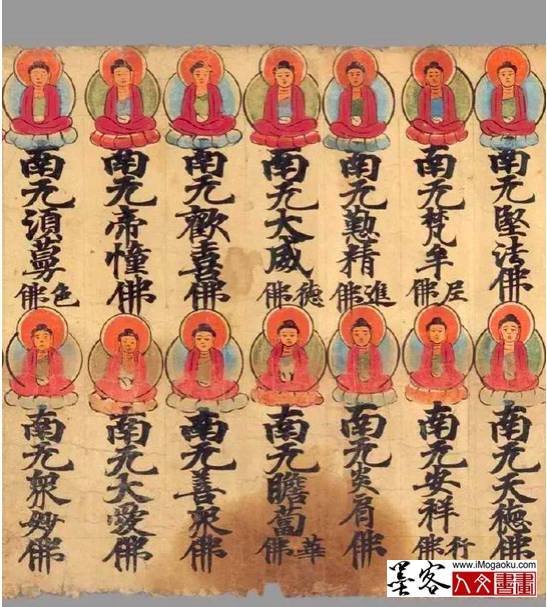 南无堅法佛
南无梵牟尼佛
南无懃精進佛
南无大威德佛
南无歡喜佛
南无帝憧佛
南无湏蔓色佛
南无天德佛
南无安祥行佛
南无炎肩佛
南无瞻蔔華佛
南无善衆佛
南无大愛佛
南无衆妙佛
墨客
www.iMogaoku.com
人文書畫